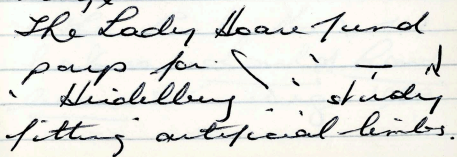 The Lady Hoare fund
pays for
" Heidelberg " study
fitting artificial limbs.